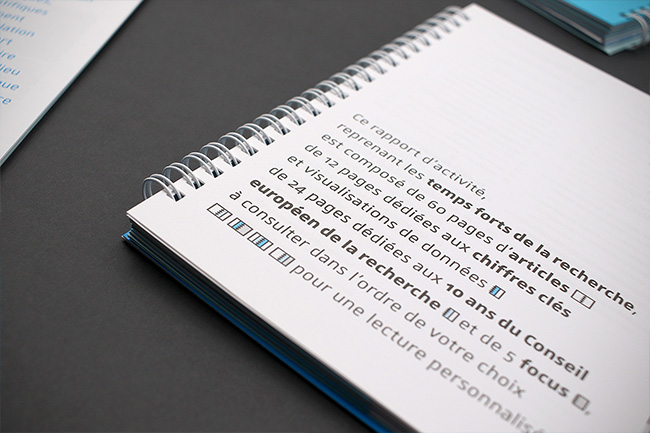 tifiques
ment
lation
ort
ire
lieu
que
ce
Ce rapport d'activité,
reprenant les temps forts de la recherche,
est composé de 60 pages d'articles
de 12 pages dédiées aux chiffres clés
et visualisations de données
de 24 pages dédiées aux 10 ans du Conseil
européen de la recherche et de 5 focus ,
à consulter dans l'ordre de votre choix
pour une lecture personnalisé